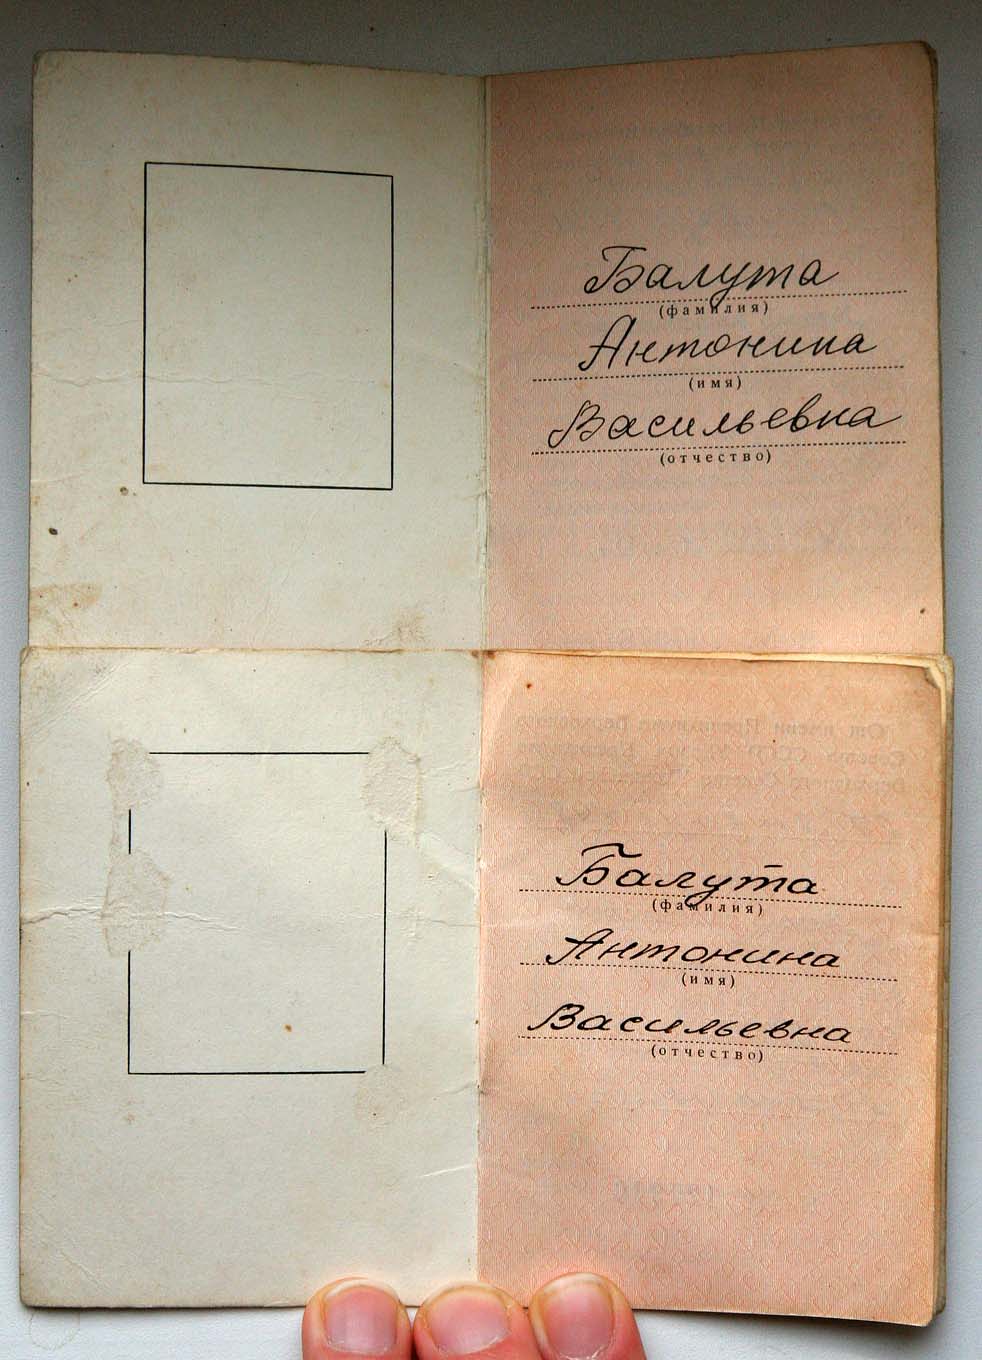 Балута
(фамилия)
Антонина
(имя)
Васильевна
(отчество)
Балута
(фамилия)
Антонина
(имя)
Васильевна
(отчество)